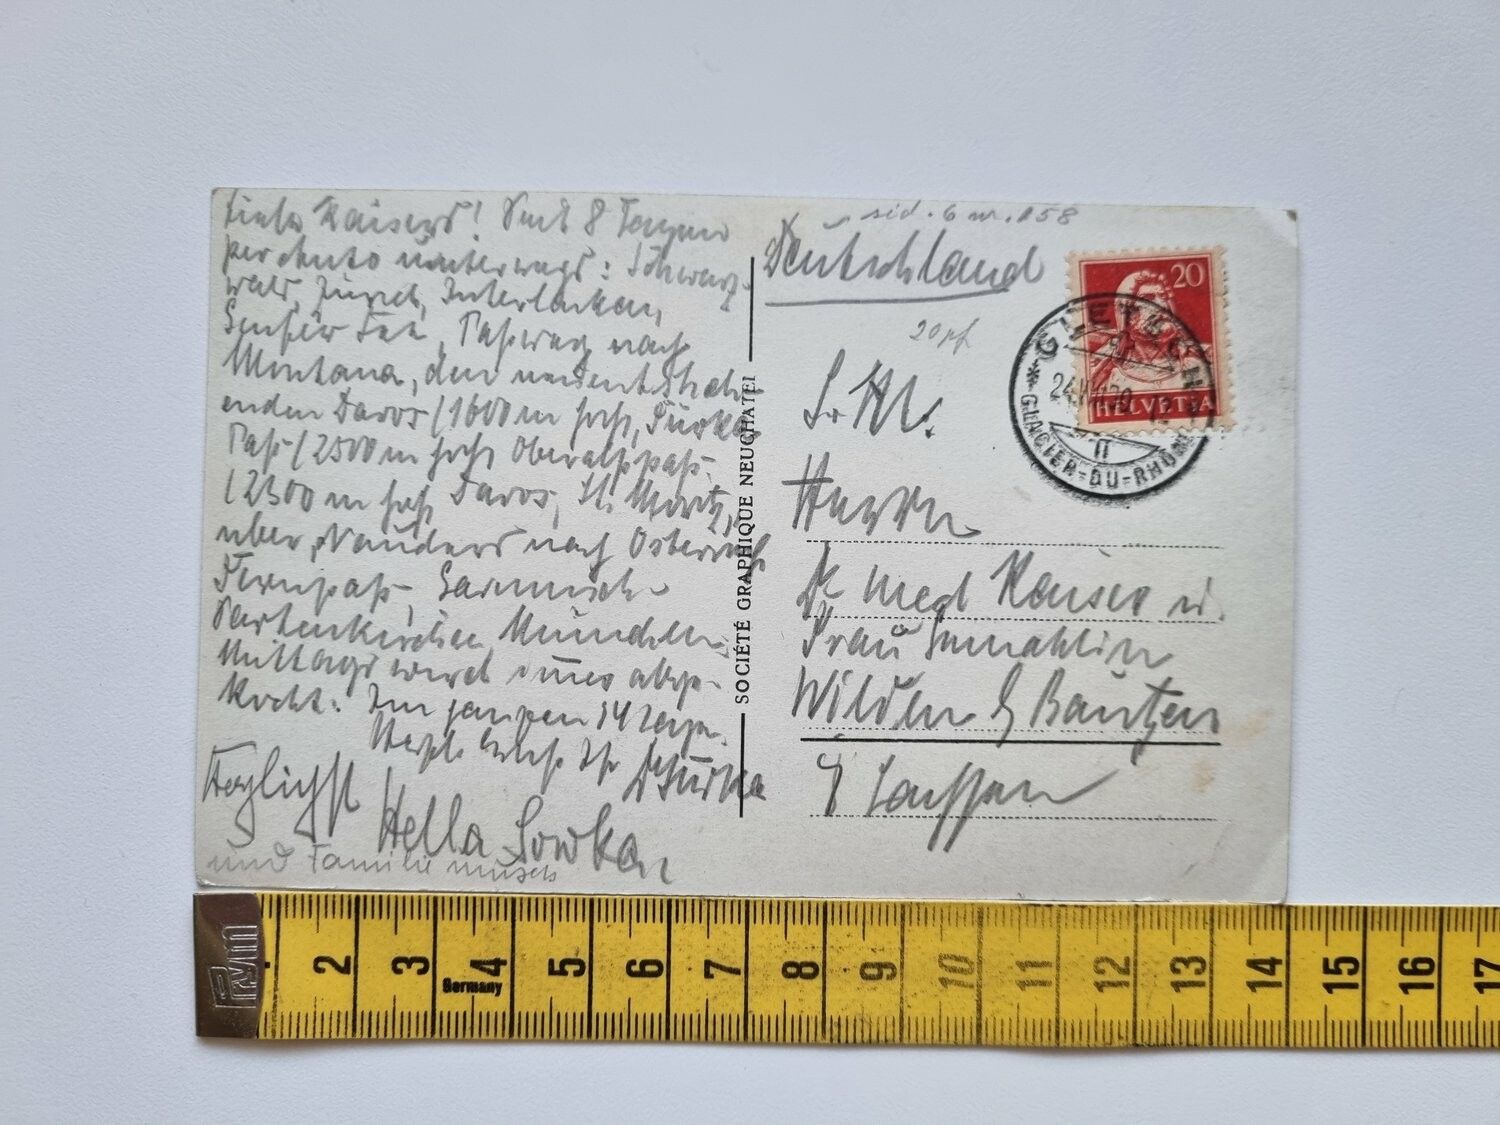 Liebe Kaisers! Seit 8 Tagen
per Auto unterwegs: Schwarz-
wald, Zürich, Interlaken,
Genfer See, Paßweg nach
Montana, dem
Davos (1600 m hoch, Furka
Paß (2500 m hoch Oberalppaß.
(2300 m hoch Davos, St. Moritz,
über Nauders nach Österreich
Fernpaß, Garmisch-
Partenkirchen, München.
Mittags wird abge-
kocht. Im ganzen 14 Tage.
Herzl. Ihr
Hella
und Familie
SOCIÉTÉ GRAPHIQUE NEUCHATEL
sid. 6 nr. 158
Deutschland
20 pf
20
HELVETIA
GLETSCH
24.VII.30
GLACIER-DU-RHÔNE
S. Hl.
Herrn
Dr med Kaiser u.
Frau Gemahlin
Wilthen b/ Bautzen
i/ Sachsen
PYM
2 3 4 5 6 7 8 9 10 11 12 13 14 15 16 17
Germany